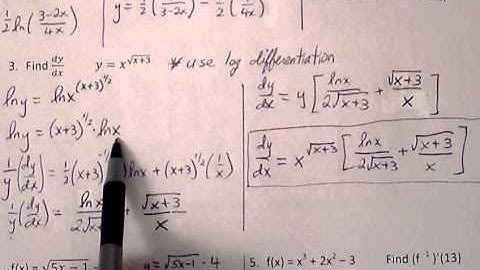 1/2 ln(3-2x/4x)
y = 1/2(    /3-2x) - 1/2(1/4x)
3. Find dy/dx y = x^√(x+3) * use log differentiation
ln y = ln x^(x+3)^1/2
ln y = (x+3)^1/2 · ln x
1/y (dy/dx) = 1/2 (x+3)^-1/2 ) ln x + (x+3)^1/2 (1/x)
1/y (dy/dx) = ln x / 2√(x + √(x+3) / x
dy/dx = y [ ln x / 2√(x+3) + √(x+3) / x ]
dy/dx = x^√(x+3) [ ln x / 2√(x+3) + √(x+3) / x ]
f(x) = √(5x-1) y = √(5x-1) - 4
5. f(x) = x³ + 2x² - 3 Find (f⁻¹)'(13)